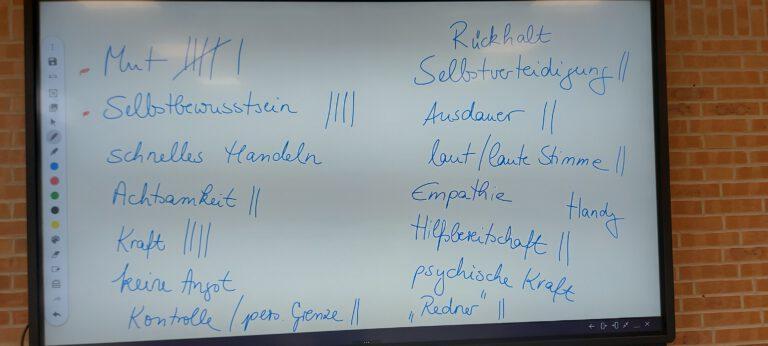 Mut |||| |
Selbstbewusstsein ||||
schnelles Handeln
Achtsamkeit ||
Kraft ||||
keine Angst
Kontrolle / pers. Grenze ||
Rückhalt
Selbstverteidigung ||
Ausdauer ||
laut / laute Stimme ||
Empathie
Handy
Hilfsbereitschaft ||
psychische Kraft
„Redner" ||